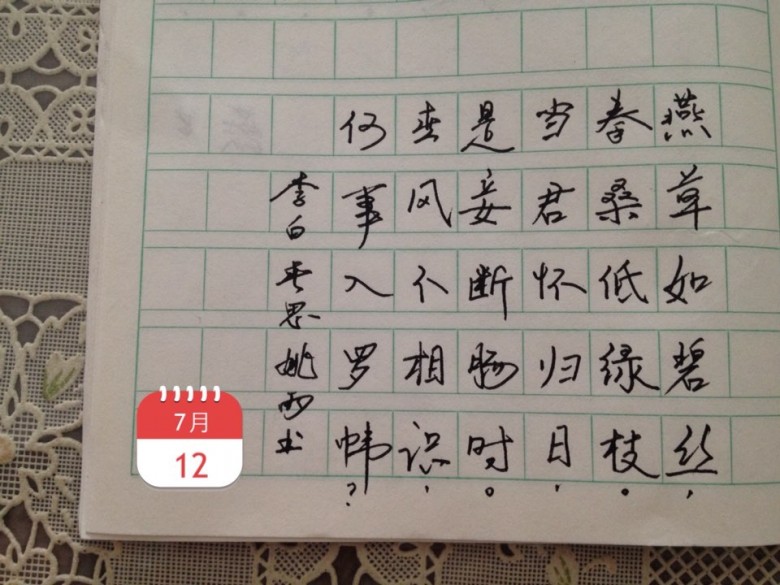 燕草如碧丝，
秦桑低绿枝。
当君怀归日，
是妾断肠时。
春风不相识，
何事入罗帏？
李白春思姚雨书
7月
12